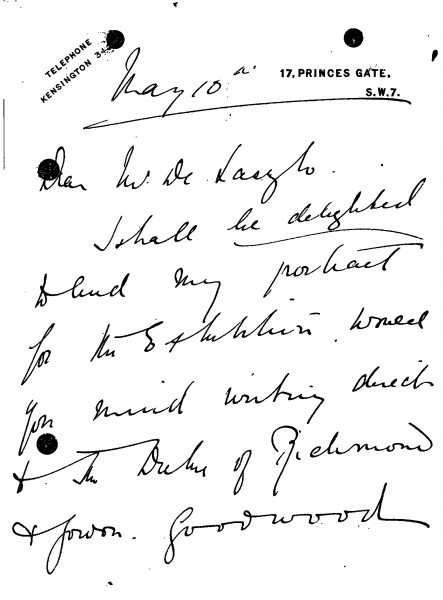 TELEPHONE
KENSINGTON 34
17, PRINCES GATE,
S.W.7.
May 10th
Dear Mr. De Laszlo.
I shall be delighted
to lend my portrait
for the Exhibition. Would
you mind writing direct
to The Duke of Richmond
& Gordon. Goodwood